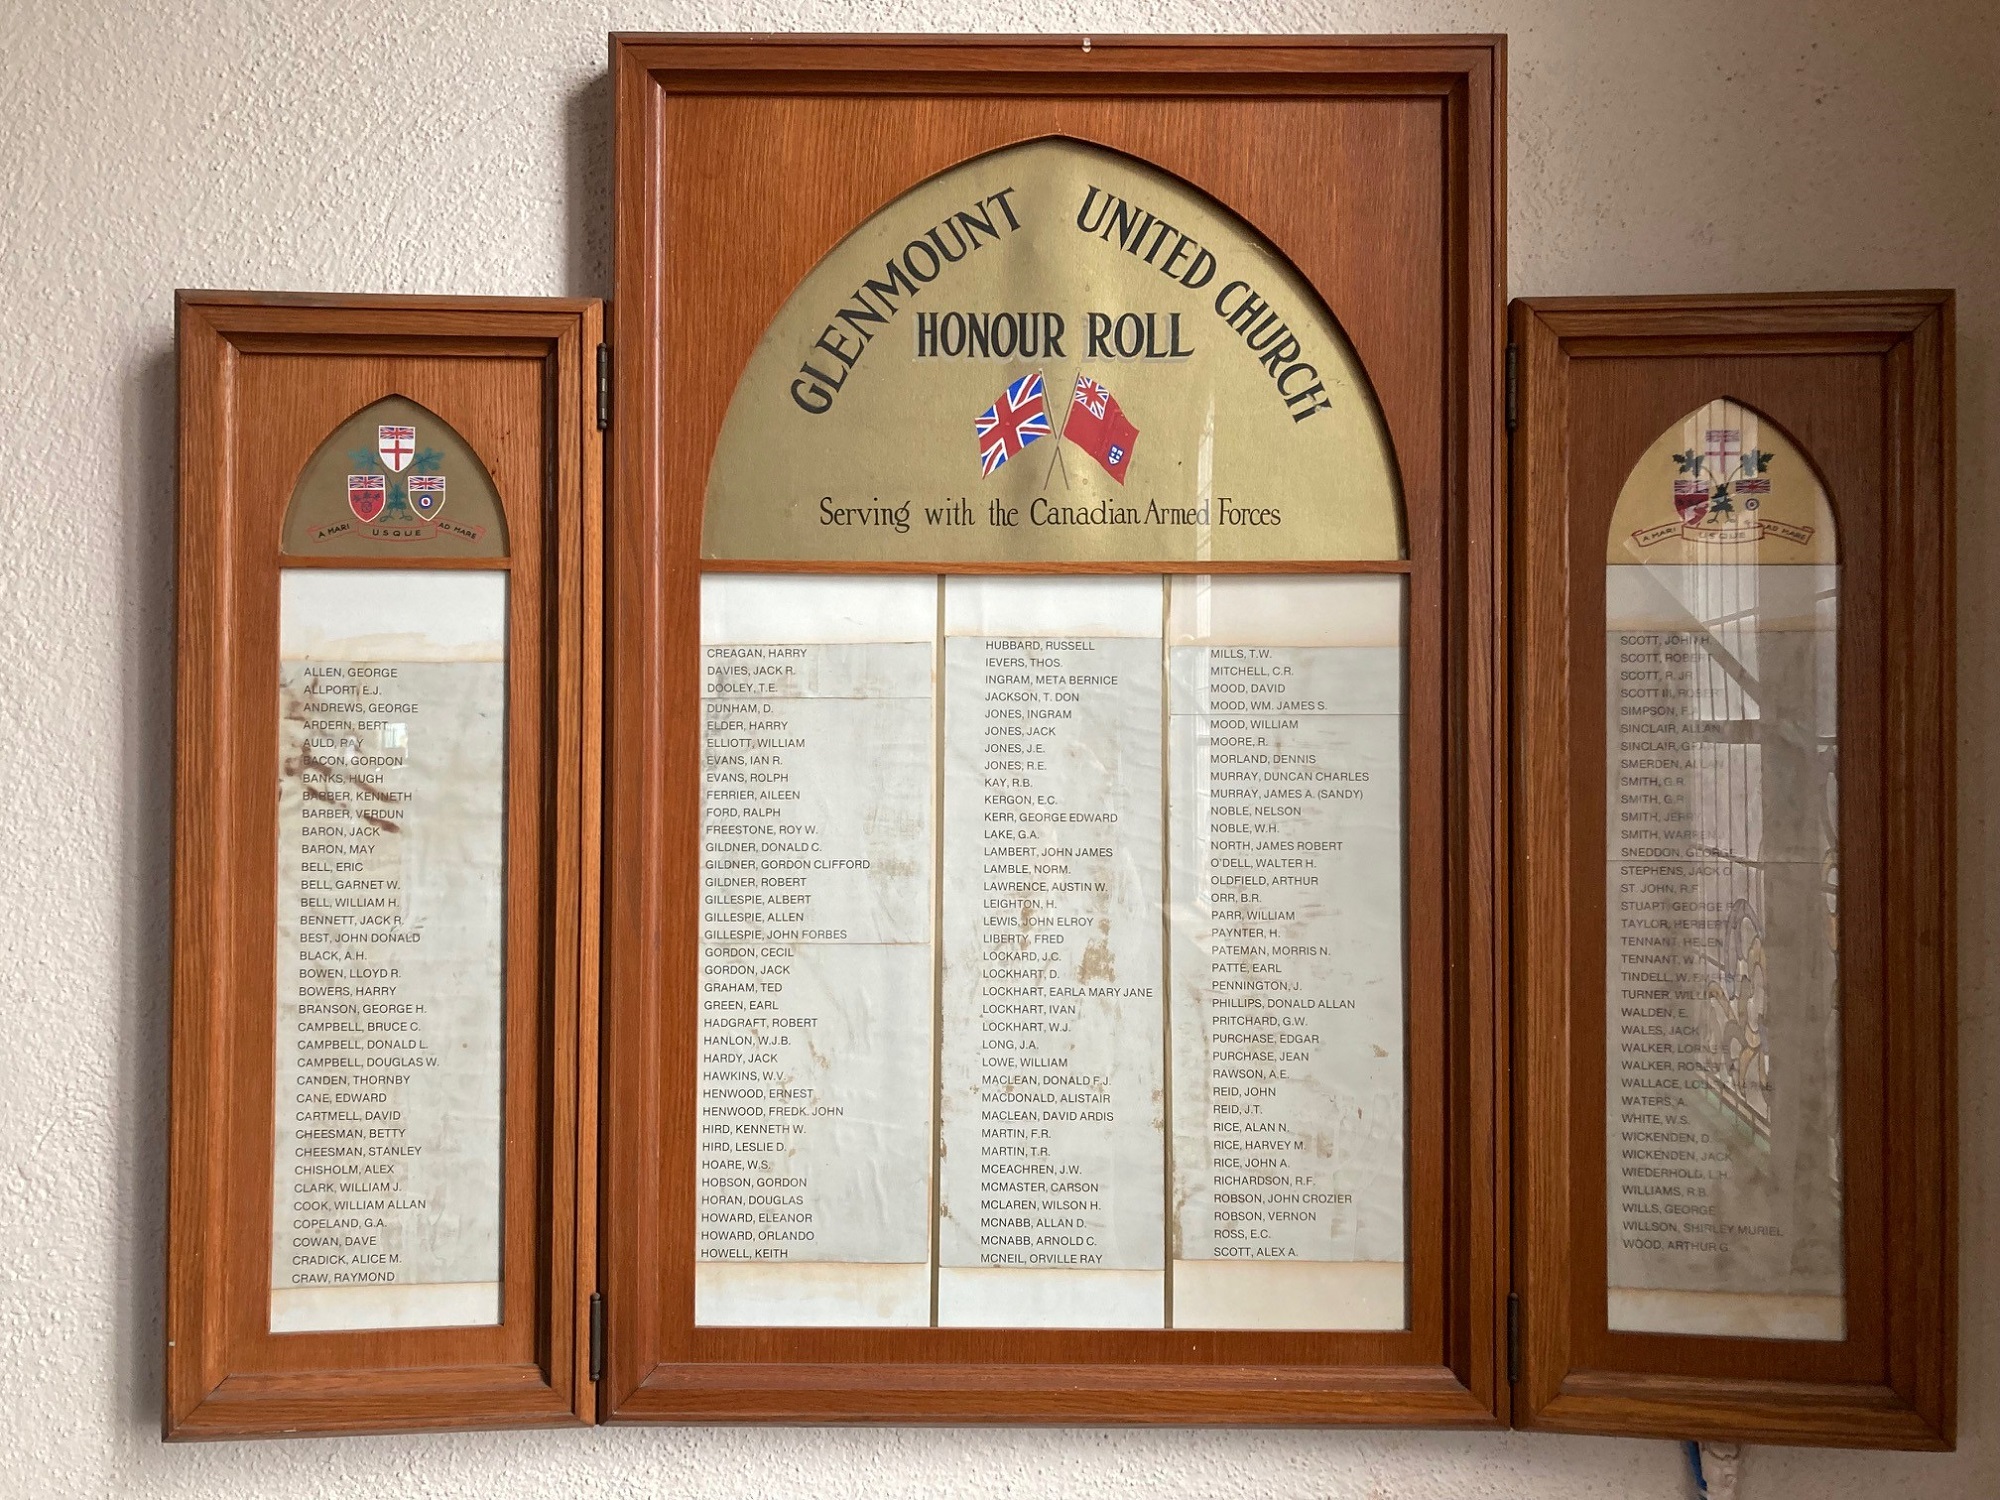 GLENMOUNT UNITED CHURCH
HONOUR ROLL
Serving with the Canadian Armed Forces
A MARI USQUE AD MARE
ALLEN, GEORGE
ALLPORT, E.J.
ANDREWS, GEORGE
ARDERN, BERT
AULD, RAY
BACON, GORDON
BANKS, HUGH
BARBER, KENNETH
BARBER, VERDUN
BARON, JACK
BARON, MAY
BELL, ERIC
BELL, GARNET W.
BELL, WILLIAM H.
BENNETT, JACK R.
BEST, JOHN DONALD
BLACK, A.H.
BOWEN, LLOYD R.
BOWERS, HARRY
BRANSON, GEORGE H.
CAMPBELL, BRUCE C.
CAMPBELL, DONALD L.
CAMPBELL, DOUGLAS W.
CANDEN, THORNBY
CANE, EDWARD
CARTMELL, DAVID
CHEESMAN, BETTY
CHEESMAN, STANLEY
CHISHOLM, ALEX
CLARK, WILLIAM J.
COOK, WILLIAM ALLAN
COPELAND, G.A.
COWAN, DAVE
CRADICK, ALICE M.
CRAW, RAYMOND
CREAGAN, HARRY
DAVIES, JACK R.
DOOLEY, T.E.
DUNHAM, D.
ELDER, HARRY
ELLIOTT, WILLIAM
EVANS, IAN R.
EVANS, ROLPH
FERRIER, AILEEN
FORD, RALPH
FREESTONE, ROY W.
GILDNER, DONALD C.
GILDNER, GORDON CLIFFORD
GILDNER, ROBERT
GILLESPIE, ALBERT
GILLESPIE, ALLEN
GILLESPIE, JOHN FORBES
GORDON, CECIL
GORDON, JACK
GRAHAM, TED
GREEN, EARL
HADGRAFT, ROBERT
HANLON, W.J.B.
HARDY, JACK
HAWKINS, W.V.
HENWOOD, ERNEST
HENWOOD, FREDK. JOHN
HIRD, KENNETH W.
HIRD, LESLIE D.
HOARE, W.S.
HOBSON, GORDON
HORAN, DOUGLAS
HOWARD, ELEANOR
HOWARD, ORLANDO
HOWELL, KEITH
HUBBARD, RUSSELL
IEVERS, THOS.
INGRAM, META BERNICE
JACKSON, T. DON
JONES, INGRAM
JONES, JACK
JONES, J.E.
JONES, R.E.
KAY, R.B.
KERGON, E.C.
KERR, GEORGE EDWARD
LAKE, G.A.
LAMBERT, JOHN JAMES
LAMBLE, NORM.
LAWRENCE, AUSTIN W.
LEIGHTON, H.
LEWIS, JOHN ELROY
LIBERTY, FRED
LOCKARD, J.C.
LOCKHART, D.
LOCKHART, EARLA MARY JANE
LOCKHART, IVAN
LOCKHART, W.J.
LONG, J.A.
LOWE, WILLIAM
MACLEAN, DONALD F.J.
MACDONALD, ALISTAIR
MACLEAN, DAVID ARDIS
MARTIN, F.R.
MARTIN, T.R.
MCEACHREN, J.W.
MCMASTER, CARSON
MCLAREN, WILSON H.
MCNABB, ALLAN D.
MCNABB, ARNOLD C.
MCNEIL, ORVILLE RAY
MILLS, T.W.
MITCHELL, C.R.
MOOD, DAVID
MOOD, WM. JAMES S.
MOOD, WILLIAM
MOORE, R.
MORLAND, DENNIS
MURRAY, DUNCAN CHARLES
MURRAY, JAMES A. (SANDY)
NOBLE, NELSON
NOBLE, W.H.
NORTH, JAMES ROBERT
O'DELL, WALTER H.
OLDFIELD, ARTHUR
ORR, B.R.
PARR, WILLIAM
PAYNTER, H.
PATEMAN, MORRIS N.
PATTE, EARL
PENNINGTON, J.
PHILLIPS, DONALD ALLAN
PRITCHARD, G.W.
PURCHASE, EDGAR
PURCHASE, JEAN
RAWSON, A.E.
REID, JOHN
REID, J.T.
RICE, ALAN N.
RICE, HARVEY M.
RICE, JOHN A.
RICHARDSON, R.F.
ROBSON, JOHN CROZIER
ROBSON, VERNON
ROSS, E.C.
SCOTT, ALEX A.
A MARI USQUE AD MARE
SCOTT, JOHN H.
SCOTT, ROBERT
SCOTT, R. JR.
SCOTT III, ROBERT
SIMPSON,
SINCLAIR, ALLAN
SINCLAIR,
SMERDEN, ALLAN
SMITH, G.R.
SMITH, G.R.
SMITH, JERRY
SMITH, WARREN
SNEDDON, GEORGE
STEPHENS, JACK O.
ST. JOHN, R.F.
STUART, GEORGE
TAYLOR, HERBERT
TENNANT, HELEN
TENNANT,
TINDELL, W.
TURNER, WILLIAM
WALDEN, E.
WALES, JACK
WALKER, LORNE
WALKER, ROBERT
WALLACE,
WATERS, A.
WHITE, W.S.
WICKENDEN, D.
WICKENDEN, JACK
WIEDERHOLD, L.H.
WILLIAMS, R.B.
WILLS, GEORGE
WILLSON, SHIRLEY MURIEL
WOOD, ARTHUR G.